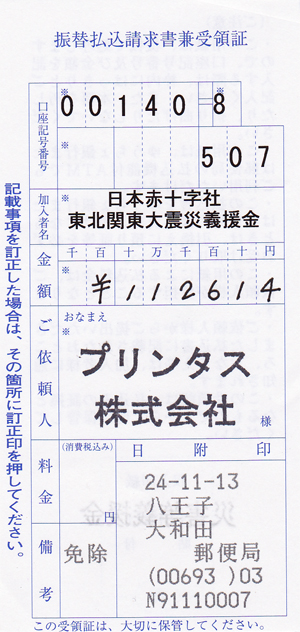 振替払込請求書兼受領証
口座記号番号
※
00140=8
※
507
加入者名
※
日本赤十字社
東北関東大震災義援金
金額
千百十万千百十円
¥112614
ご依頼人
おなまえ
※
プリンタス
株式会社
様
料金
(消費税込み)
円
備考
免除
日附印
24-11-13
八王子
大和田
郵便局
(00693 )03
N91110007
記載事項を訂正した場合は、その箇所に訂正印を押してください。
この受領証は、大切に保管してください。